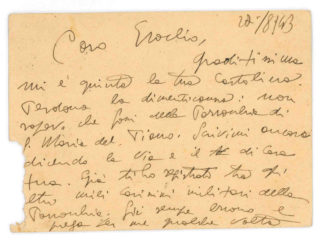 20/8/943
Caro Eraclio,
graditissima
mi è giunta la tua Cartolina.
Perdona la dimenticanza: non
sapevo che fossi della Parrocchia di
S. Maria del Piano. Scrivimi ancora
dicendo la Via e il di Casa
tua. Già ti ho registrato tra gli
altri miei carissimi militari della
Parrocchia. Sii sempre buono e
prega per me qualche volta